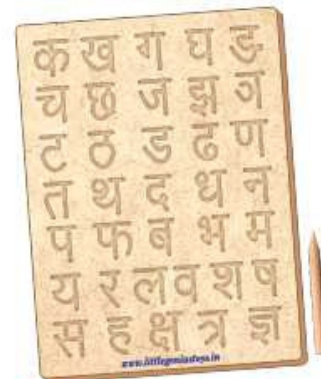 क ख ग घ ङ
च छ ज झ ञ
ट ठ ड ढ ण
त थ द ध न
प फ ब भ म
य र ल व श ष
स ह क्ष त्र ज्ञ
www.littlegeniustoys.in